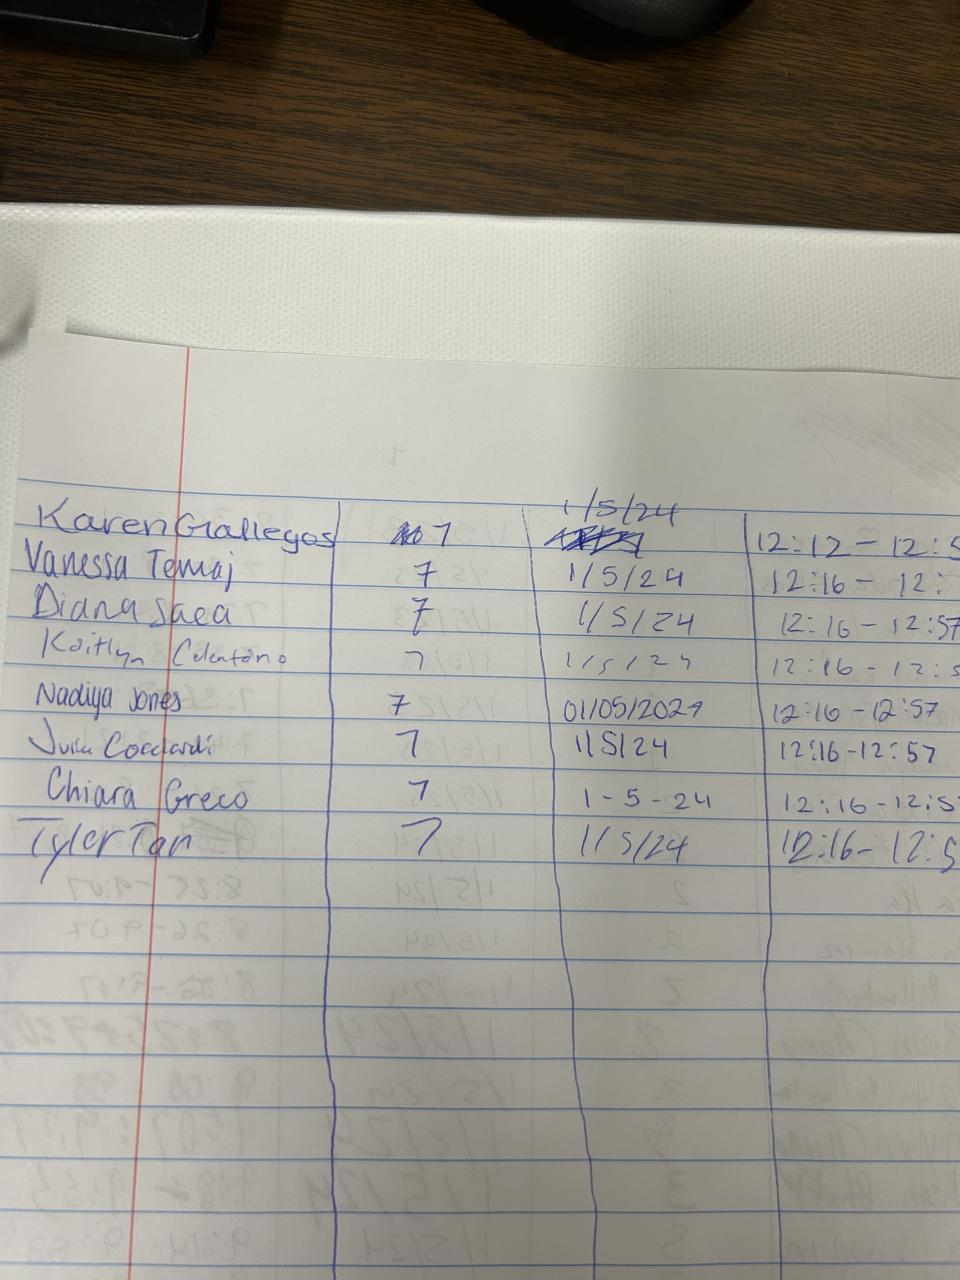 Karen Gallegos 7 1/5/24 12:12 - 12:5
Vanessa Temaj 7 1/5/24 12:16 - 12:
Diana Saea 7 1/5/24 12:16 - 12:57
Kaitlyn Celentano 7 1/5/24 12:16 - 12:5
Nadiya Jones 7 01/05/2024 12:16 - 12:57
7 1/5/24 12:16-12:57
Chiara Greco 7 1-5-24 12:16-12:5
Tyler Tan 7 1/5/24 12:16-12:5